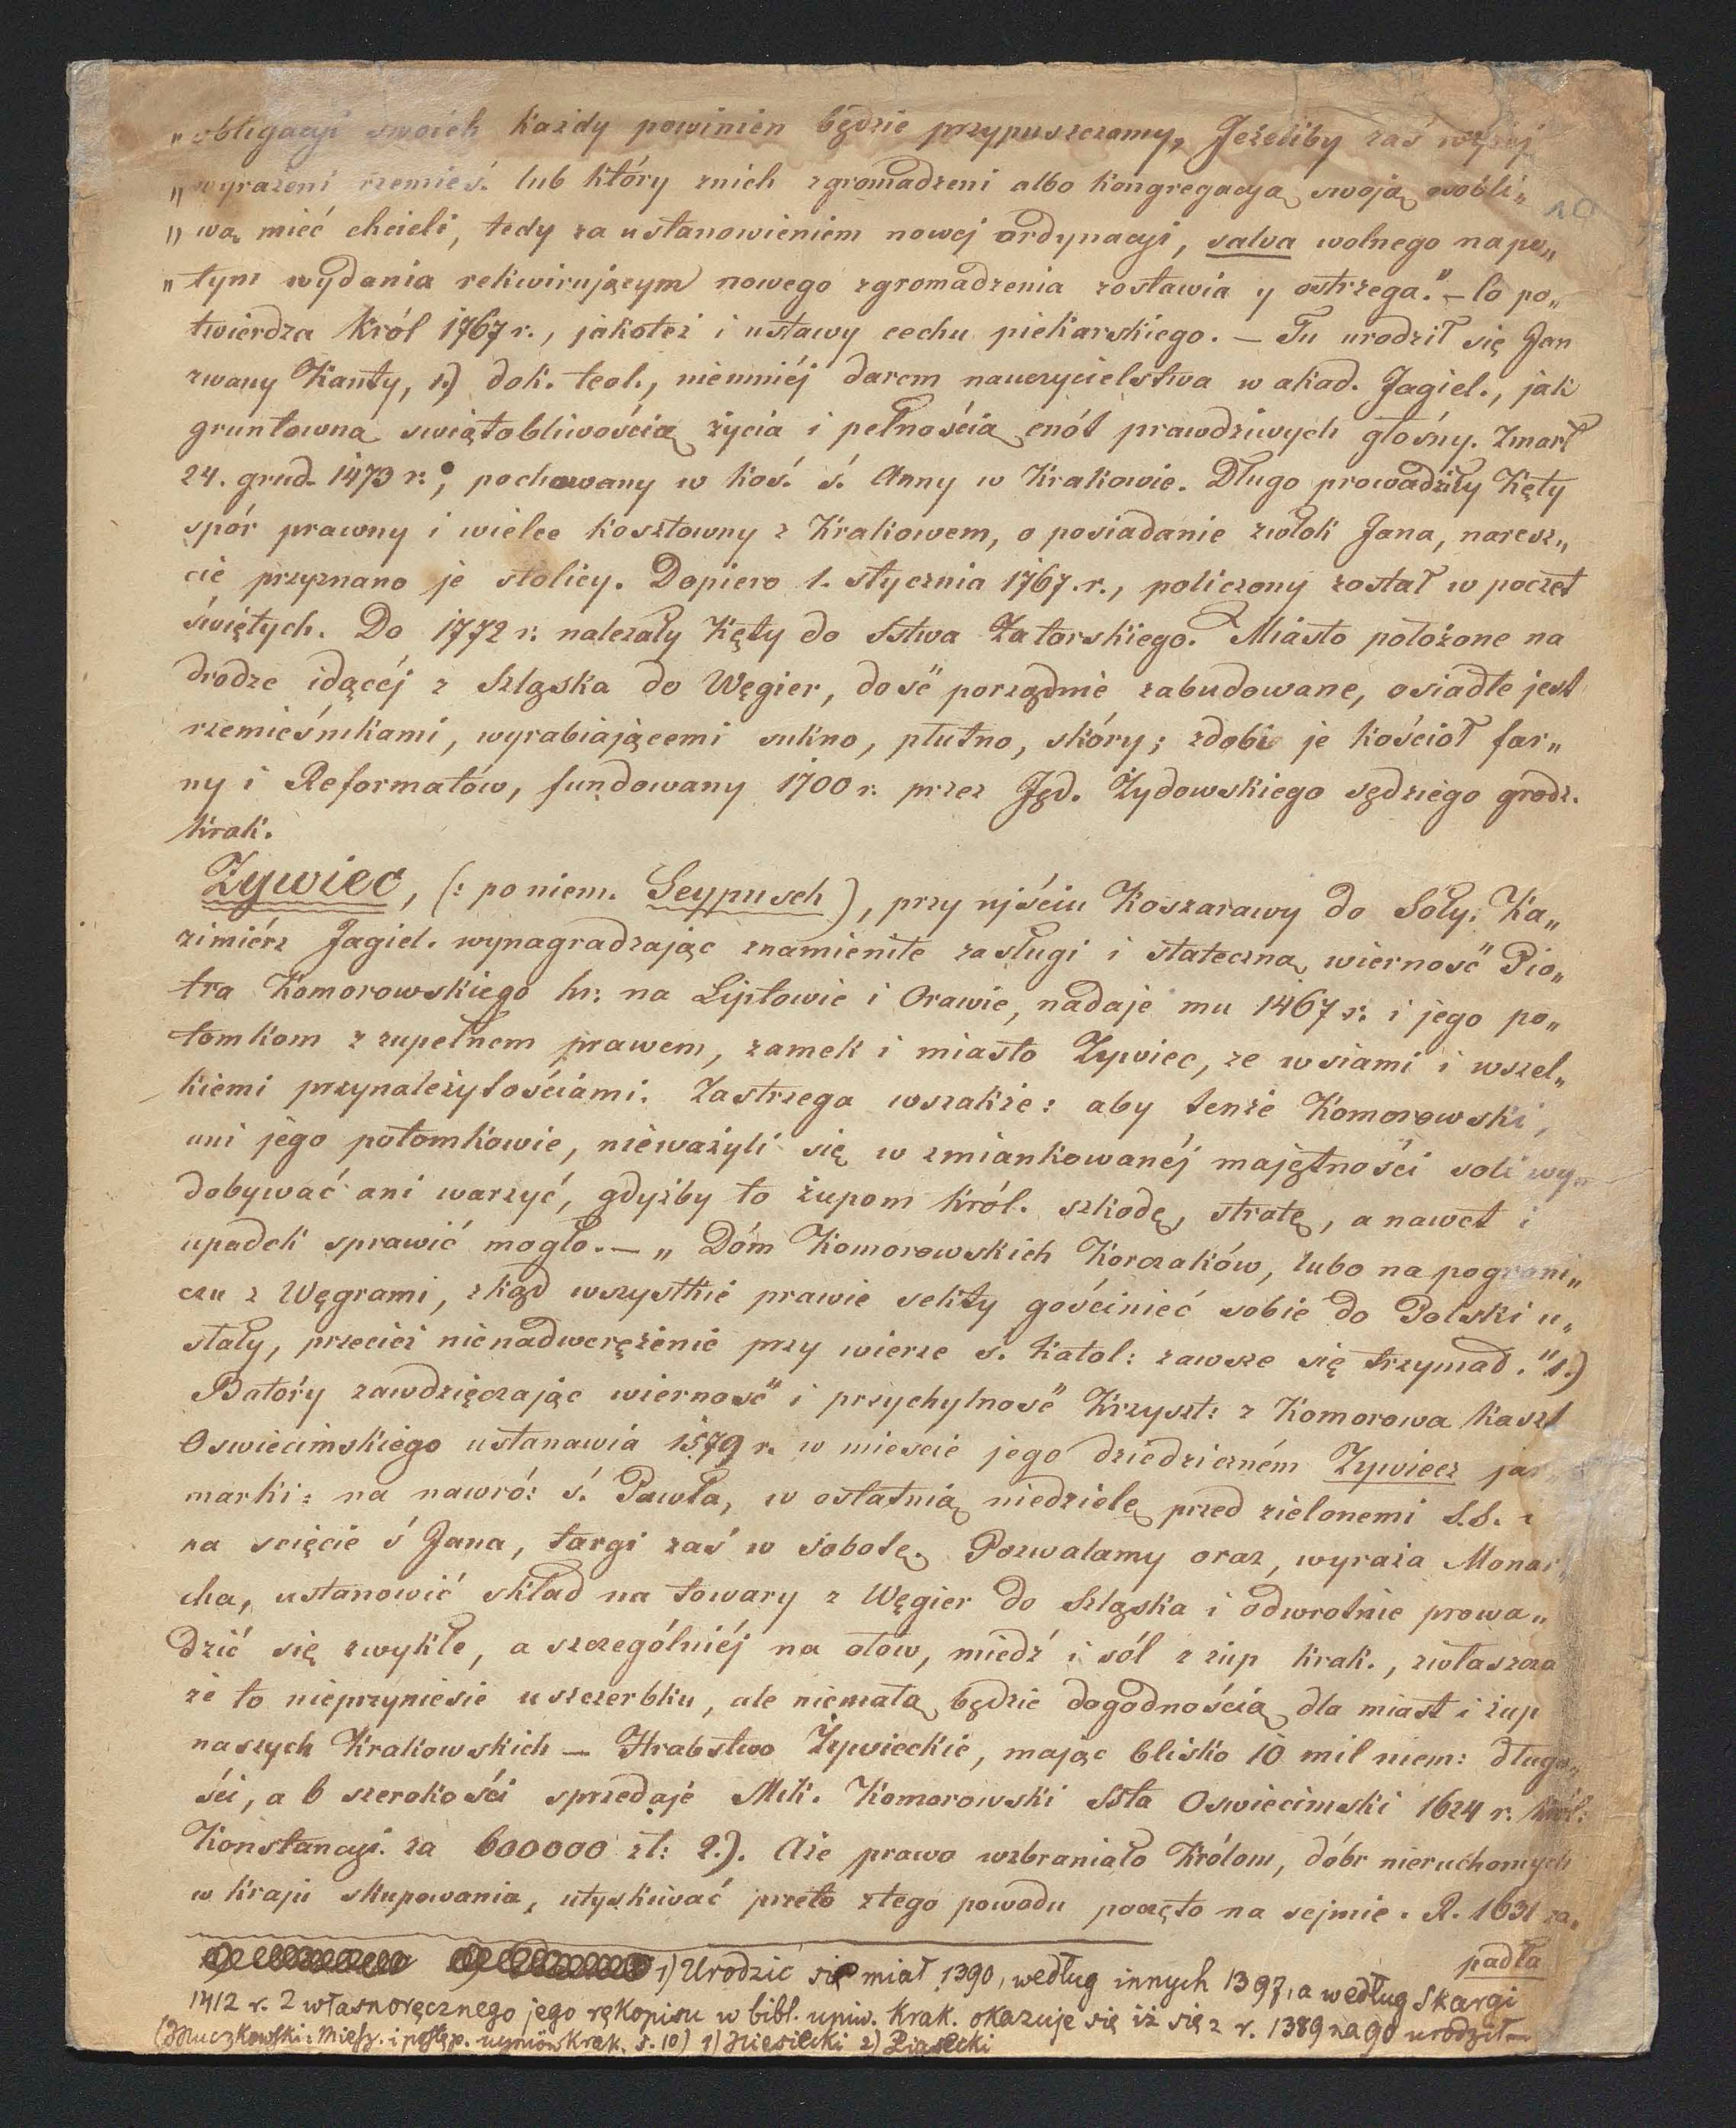 „obligacyi swoich każdy powinien będzie przypuszczomy, Jeżeliby zaś wyżej
„wyrażeni rzemieś. lub który znich zgromadzeni albo kongregacyą swoją osobli„
„wą mieć chcieli, tedy za ustanowieniem nowej ordynacyi, salva wolnego napo„
„tym wydania rekwirującym nowego zgromadzenia zostawia y ostrzega." – Co po„
twierdza Król 1767 r., jakoteż i ustawy cechu piekarskiego. – Tu urodził się Jan
zwany Kanty, 1.) dok. teol., niemniéj darem nauczycielstwa w akad. Jagiel., jak
gruntowną swiątobliwością życia i pełnością cnót prawdziwych głośny. Zmarł
24. grud. 1473 r.; pochowany w koś. ś. Anny w Krakowie. Długo prowadziły Kęty
spór prawny i wielce kosztowny z Krakowem, o posiadanie zwłok Jana, naresz„
cie przyznano je stolicy. Dopiero 1. stycznia 1767. r., policzony został w poczet
świętych. Do 1772 r. należały Kęty do Sstwa Zatorskiego. Miasto położone na
drodze idącéj z Szląska do Węgier, dosć porządnie zabudowane, osiadłe jest
rzemieśnikami, wyrabiającemi sukno, płutno, skóry; zdobi je kościoł far„
ny i Reformatów, fundowany 1700 r. przez Jęd. Żydowskiego sędziego grodz.
krak.
Zywiec, (: po niem. Seypusch), przy ujściu Koszarawy do Soły. Ka„
zimiérz Jagiel. wynagradzając znamienite zasługi i stateczną wierność Pio„
tra Komorowskiego hr: na Liptowie i Orawie, nadaje mu 1467 r. i jego po„
tomkom z zupełnem prawem, zamek i miasto Zywiec, ze wsiami i wszel„
kiemi przynależytościami. Zastrzega wszakże: aby tenże Komorowski,
ani jego potomkowie, nieważyli się w zmiankowanéj majętności soli wy„
dobywać ani warzyć, gdyżby to żupom król. szkodę, stratę, a nawet i
upadek sprawić mogło. – „Dóm Komorowskich Korczaków, lubo na pograni„
czu z Węgrami, zkąd wszystkie prawie sekty gościnieć sobie do Polski u„
stały, przecież nienadwerężenie przy wierze ś. katol: zawsze się trzymał." 1.)
Batory zawdzięczając wierność i przychylność Krzyszt: z Komorowa kaszt
Oswiecimskiego ustanawia 1579 r. w mieście jego dziedziczném Zywiecz jar
marki: na nawró: ś. Pawła, w ostatnią niedzielę przed zielonemi S.S. i
na scięcie ś Jana, targi zaś w sobotę. Pozwalamy oraz, wyraża Monar„
cha, ustanowić skład na towary z Węgier do Szląska i odwrotnie prowa„
dzić się zwykłe, a szczególniéj na ołów, miedź i sól z żup krak., zwłaszcza
że to nieprzyniesie uszczerbku, ale niemałą będzie dogodnością dla miast i żup
naszych Krakowskich – Hrabstwo Żywieckie, mając blisko 10 mil niem: długo„
ści, a 6 szerokości sprzedaje Mik. Komorowski Ssta Oswiecimski 1624 r. król:
Konstancyi. za 600000 zł: 2.). Aże prawo wzbraniało Królom, dóbr nieruchomych
w kraju skupowania, utyskiwać przeto ztego powodu poczęto na sejmie. R. 1631 za„
padła
1) Urodzić się miał 1390, według innych 1397, a według Skargi
1412 r. Z własnoręcznego jego rękopisu w bibl. uniw. krak. okazuje się iż się z r. 1389 na 90 urodził –
(Muczkowski: Miesz. i postęp. w uniw Krak. s. 10) 1) Niesiecki 2) Piasecki